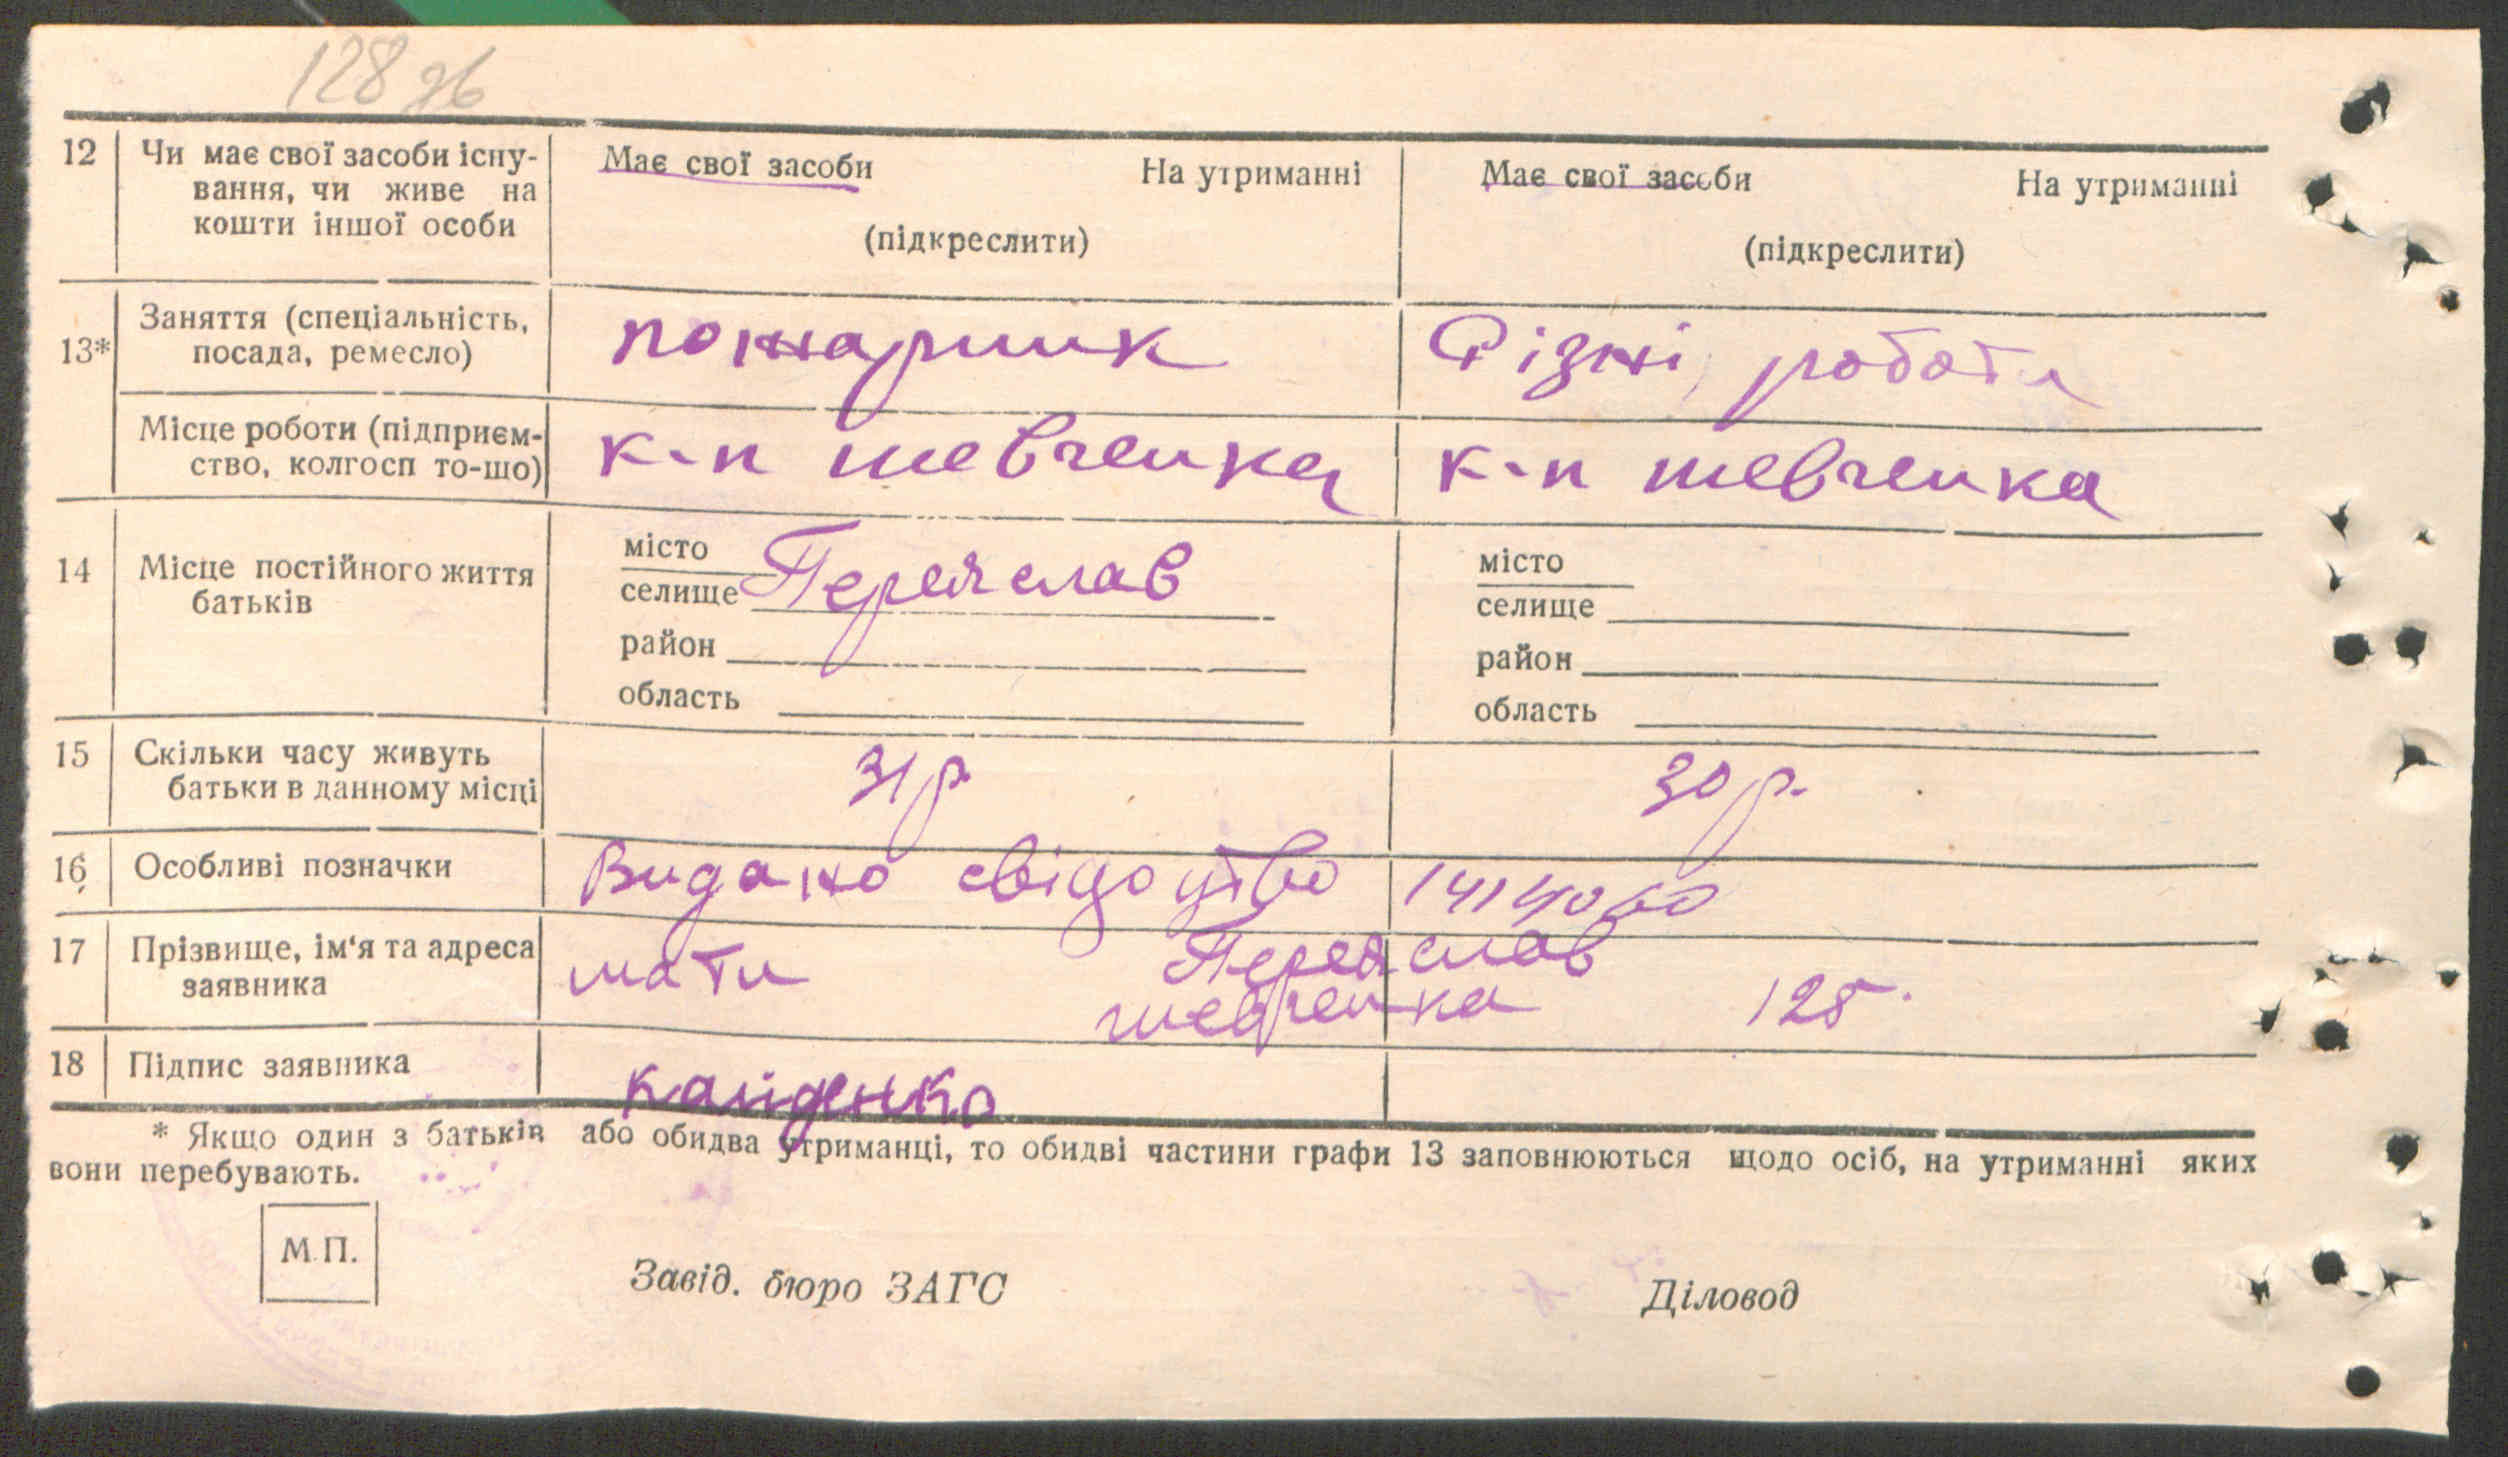 128 зв
12 Чи має свої засоби існу- Має свої засоби На утриманні Має свої засоби На утриманні
вання, чи живе на
кошти іншої особи (підкреслити) (підкреслити)
13* Заняття (спеціальність, пожарник Різні роботи
посада, ремесло)
Місце роботи (підприєм- к-п шевченка к-п шевченка
ство, колгосп то-що)
14 Місце постійного життя місто Переяслав місто
батьків селище селище
район район
область область
15 Скільки часу живуть 31 р. 30 р.
батьки в данному місці
16 Особливі позначки Видано свідоцтво
17 Прізвище, ім'я та адреса мати Переяслав
заявника шевченка 125.
18 Підпис заявника
* Якщо один з батьків або обидва утриманці, то обидві частини графи 13 заповнюються щодо осіб, на утриманні яких
вони перебувають.
М.П.
Завід. бюро ЗАГС Діловод